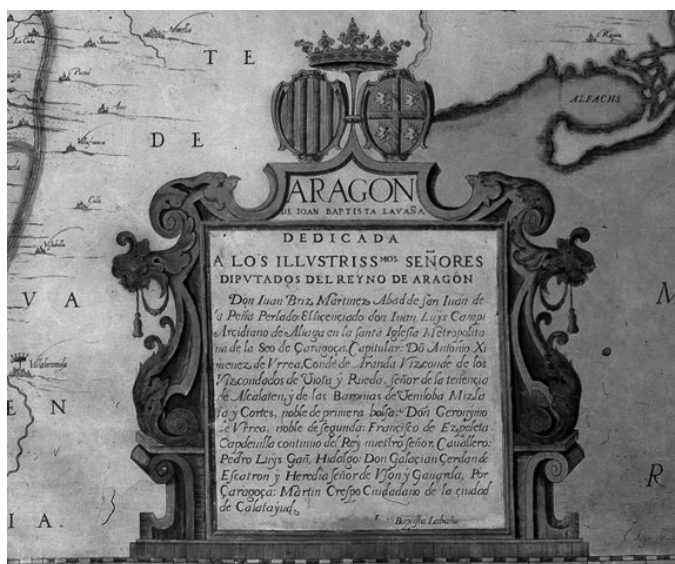 TE
DE
ALFACHS
ARAGON
DE IOAN BAPTISTA LAVAÑA
DEDICADA
A LOS ILLVSTRISSMOS. SEÑORES
DIPVTADOS DEL REYNO DE ARAGÓN
Don Iuan Briz Martinez Abad de San Iuan de
la Peña Perlado: El licenciado don Iuan Luys Campi
Arcidiano de Aliaga en la santa Iglesia Metropolita
na de la Seo de Çaragoça, Capitular: Dõ Antonio Xi
menez de Vrrea, Conde de Aranda Vizconde de los
Vizcondados de Viota y Rueda, señor de la tenencia
de Alcalaten, y de las Baronias de Veniloba Mizla
ta y Cortes, noble de primera bolsa: Don Geronymo
de Vrrea, noble de segunda: Francisco de Ezpeleta
Capdeuilla continuo del Rey nuestro señor, Cauallero:
Pedro Luys Gañ, Hidalgo: Don Galaçian Cerdan de
Escatron y Heredia señor de Vson y Gauarda, Por
Çaragoça: Martin Crespo Ciudadano de la ciudad
de Calatayud.
Baptista Labaña
VA
EN
IA
M
R